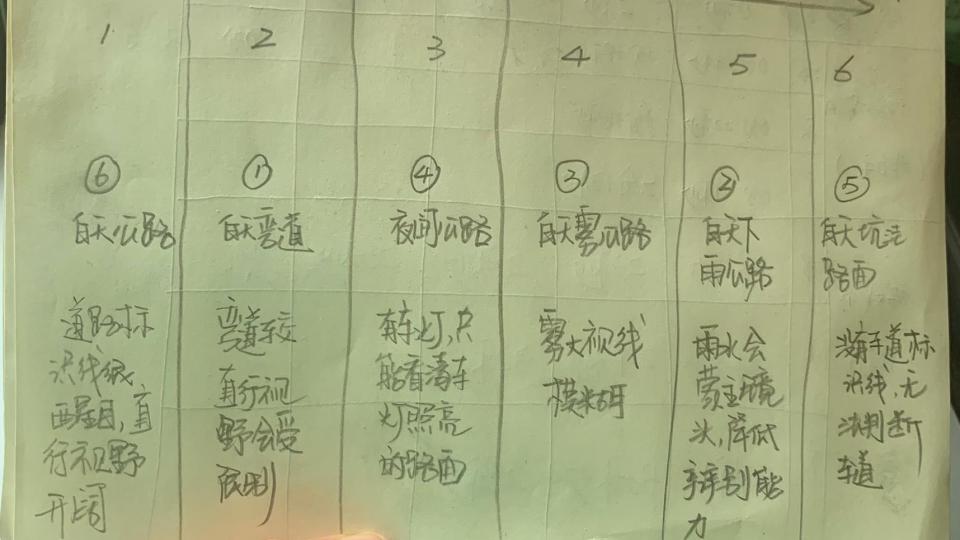 1 2 3 4 5 6
⑥ ① ④ ③ ② ⑤
白天公路
白天弯道
夜间公路
白天雾公路
白天下
雨公路
白天坑洼
路面
道路标
识线很
醒目,直
行视野
开阔
弯道较
直行视
野会受
限制
有车灯,只
能看清车
灯照亮
的路面
雾大视线
模糊
雨水会
蒙住镜
头,降低
辨别能
力
没有车道标
识线,无
法判断
车道